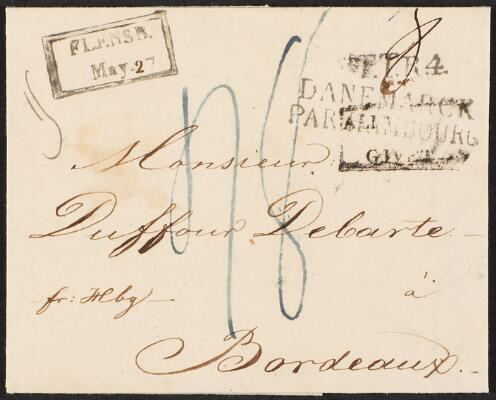 FLENSB.
May. 27
R.4
DANEMARCK
PAR
HAMBOURG
ALL
GIVET
Monsieur
Duffour Debarte
fr: Hbg
à
Bordeaux.